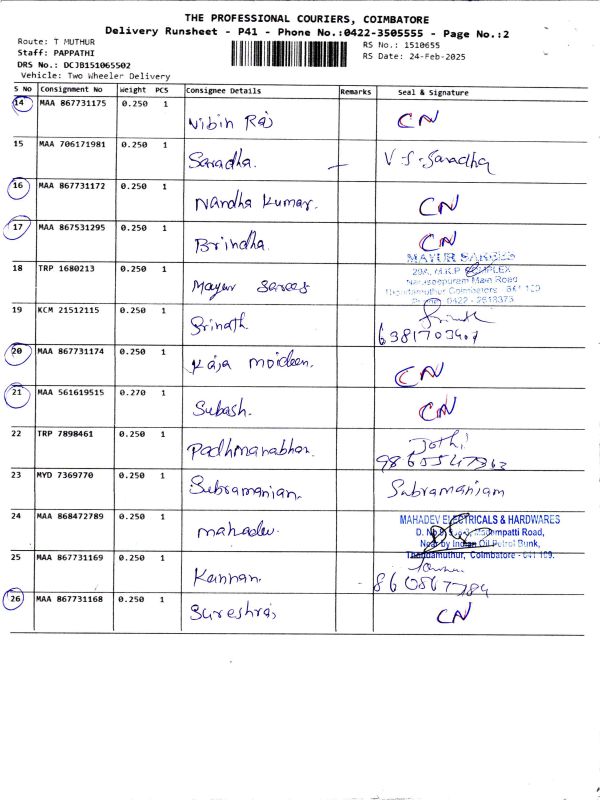 THE PROFESSIONAL COURIERS, COIMBATORE
Delivery Runsheet - P41 - Phone No.:0422-3505555 - Page No.:2
Route: T MUTHUR
Staff: PAPPATHI
DRS No.: DCJB151065502
Vehicle: Two Wheeler Delivery
RS No.: 1510655
RS Date: 24-Feb-2025
S No Consignment No Weight PCS Consignee Details Remarks Seal & Signature
14 MAA 867731175 0.250 1 Nibin Raj CN
15 MAA 706171981 0.250 1 Saradha. V-S-Saradha
16 MAA 867731172 0.250 1 Nandha Kumar. CN
17 MAA 867531295 0.250 1 Brindha. CN
MAYUR SAREES
29A, M.K.P. COMPLEX
Naraseepuram Main Road
18 TRP 1680213 0.250 1 Mayur Sarees
19 KCM 21512115 0.250 1 Srinath. Srinath
6381703407
20 MAA 867731174 0.250 1 Kaja moideen. CN
21 MAA 561619515 0.270 1 Subash. CN
22 TRP 7898461 0.250 1 Padhmanabhan. Jothi
23 MYD 7369770 0.250 1 Subramanian. Subramaniam
24 MAA 868472789 0.250 1 mahadev.
MAHADEV ELECTRICALS & HARDWARES
Madampatti Road,
Near by Indian Oil Petrol Bunk,
Thondamuthur, Coimbatore - 641 109.
25 MAA 867731169 0.250 1 Kannan.
860867784
26 MAA 867731168 0.250 1 Sureshraj CN